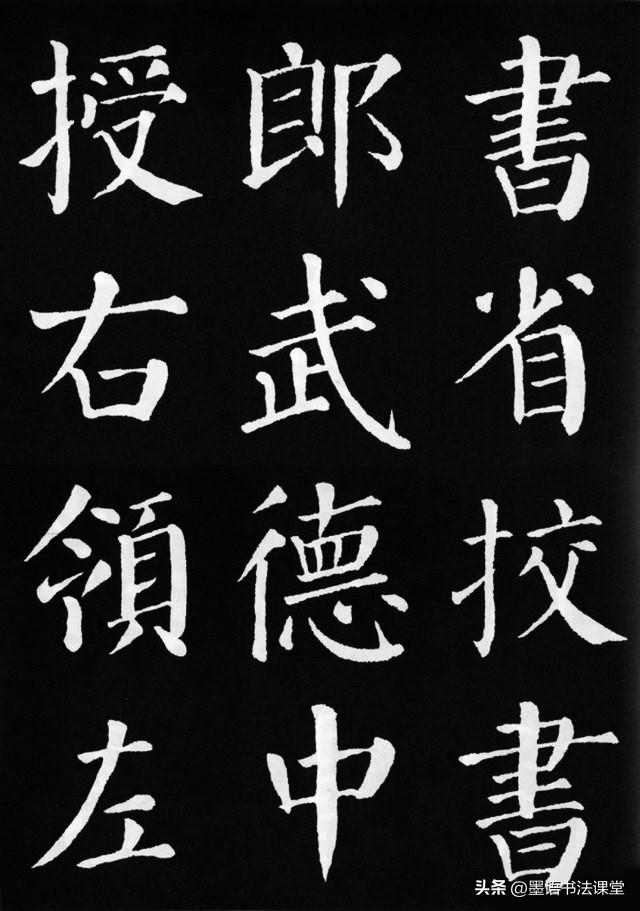 書省挍書
郎武德中
授右領左
头条 @墨语书法课堂